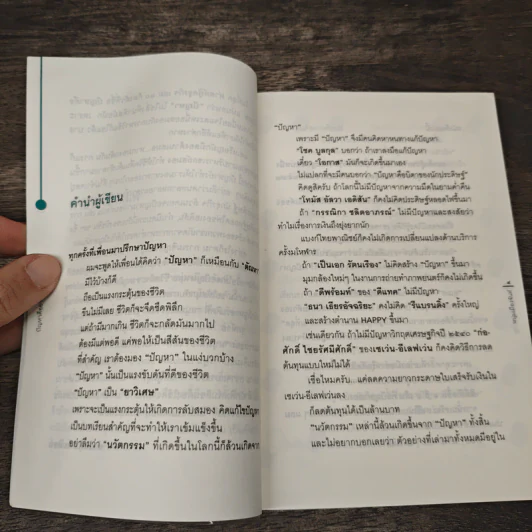 คำนำผู้เขียน
ทุกครั้งที่เพื่อนมาปรึกษาปัญหา
ผมจะพูดให้เพื่อนได้คิดว่า "ปัญหา" ก็เหมือนกับ
มีไว้บ้างก็ดี
ถือเป็นแรงกระตุ้นของชีวิต
ขืนไม่มีเลย ชีวิตก็จะจืดชืดพิลึก
แต่ถ้ามีมากเกิน ชีวิตก็จะกลัดมันมากไป
ต้องมีแต่พอดี แค่พอให้เป็นสีสันของชีวิต
ที่สำคัญ เราต้องมอง "ปัญหา" ในแง่บวกบ้าง
"ปัญหา" นั้นเป็นแรงขับดันที่ดีของชีวิต
"ปัญหา" เป็น "ยาวิเศษ"
เพราะจะเป็นแรงกระตุ้นให้เกิดการลับสมอง คิดแก้ไขปัญหา
เป็นบทเรียนสำคัญที่จะทำให้เราเข้มแข็งขึ้น
อย่าลืมว่า "นวัตกรรม" ที่เกิดขึ้นในโลกนี้ก็ล้วนเกิดจาก
"ปัญหา"
เพราะมี "ปัญหา" จึงมีคนคิดหาหนทางแก้ปัญหา
"โชค บูลกุล" บอกว่า ถ้าเราลงมือแก้ปัญหา
เดี๋ยว "โอกาส" มันก็จะเกิดขึ้นมาเอง
ไม่แปลกที่จะมีคนบอกว่า "ปัญหาคือบิดาของนักประดิษฐ์"
คิดดูสิครับ ถ้าโลกนี้ไม่มีปัญหาจากความมืดในยามค่ำคืน
"โทมัส อัลวา เอดิสัน" ก็คงไม่คิดประดิษฐ์หลอดไฟขึ้นมา
ถ้า "กรรณิกา ชลิตอาภรณ์" ไม่มีปัญหาและสงสัยว่า
ทำไมเรื่องการเงินถึงยุ่งยากนัก
แบงก์ไทยพาณิชย์ก็คงไม่เกิดการเปลี่ยนแปลงด้านบริการ
ครั้งมโหฬาร
ถ้า "เป็นเอก รัตนเรือง" ไม่คิดสร้าง "ปัญหา" ขึ้นมา
มุมกล้องใหม่ๆ ในงานการถ่ายทำภาพยนตร์ก็คงไม่เกิดขึ้น
ถ้า "ดีพร้อมท์" ของ "ดีแทค" ไม่มีปัญหา
"ธนา เธียรอัจฉริยะ" คงไม่คิด "รีแบรนดิ้ง" ครั้งใหญ่
และสร้างตำนาน HAPPY ขึ้นมา
เช่นเดียวกัน ถ้าไม่มีปัญหาวิกฤตเศรษฐกิจปี ๒๕๔๐ "ก่อ-
ศักดิ์ ไชยรัศมีศักดิ์" ของเซเว่น-อีเลฟเว่น ก็คงคิดวิธีการลด
ต้นทุนแบบใหม่ไม่ได้
เชื่อไหมครับ.. แค่ลดความยาวกระดาษใบเสร็จรับเงินใน
เซเว่น-อีเลฟเว่นลง
ก็ลดต้นทุนได้เป็นล้านบาท
"นวัตกรรม" เหล่านี้ล้วนเกิดขึ้นจาก "ปัญหา" ทั้งสิ้น
และไม่อยากบอกเลยว่า ตัวอย่างที่เล่ามาทั้งหมดมีอยู่ใน